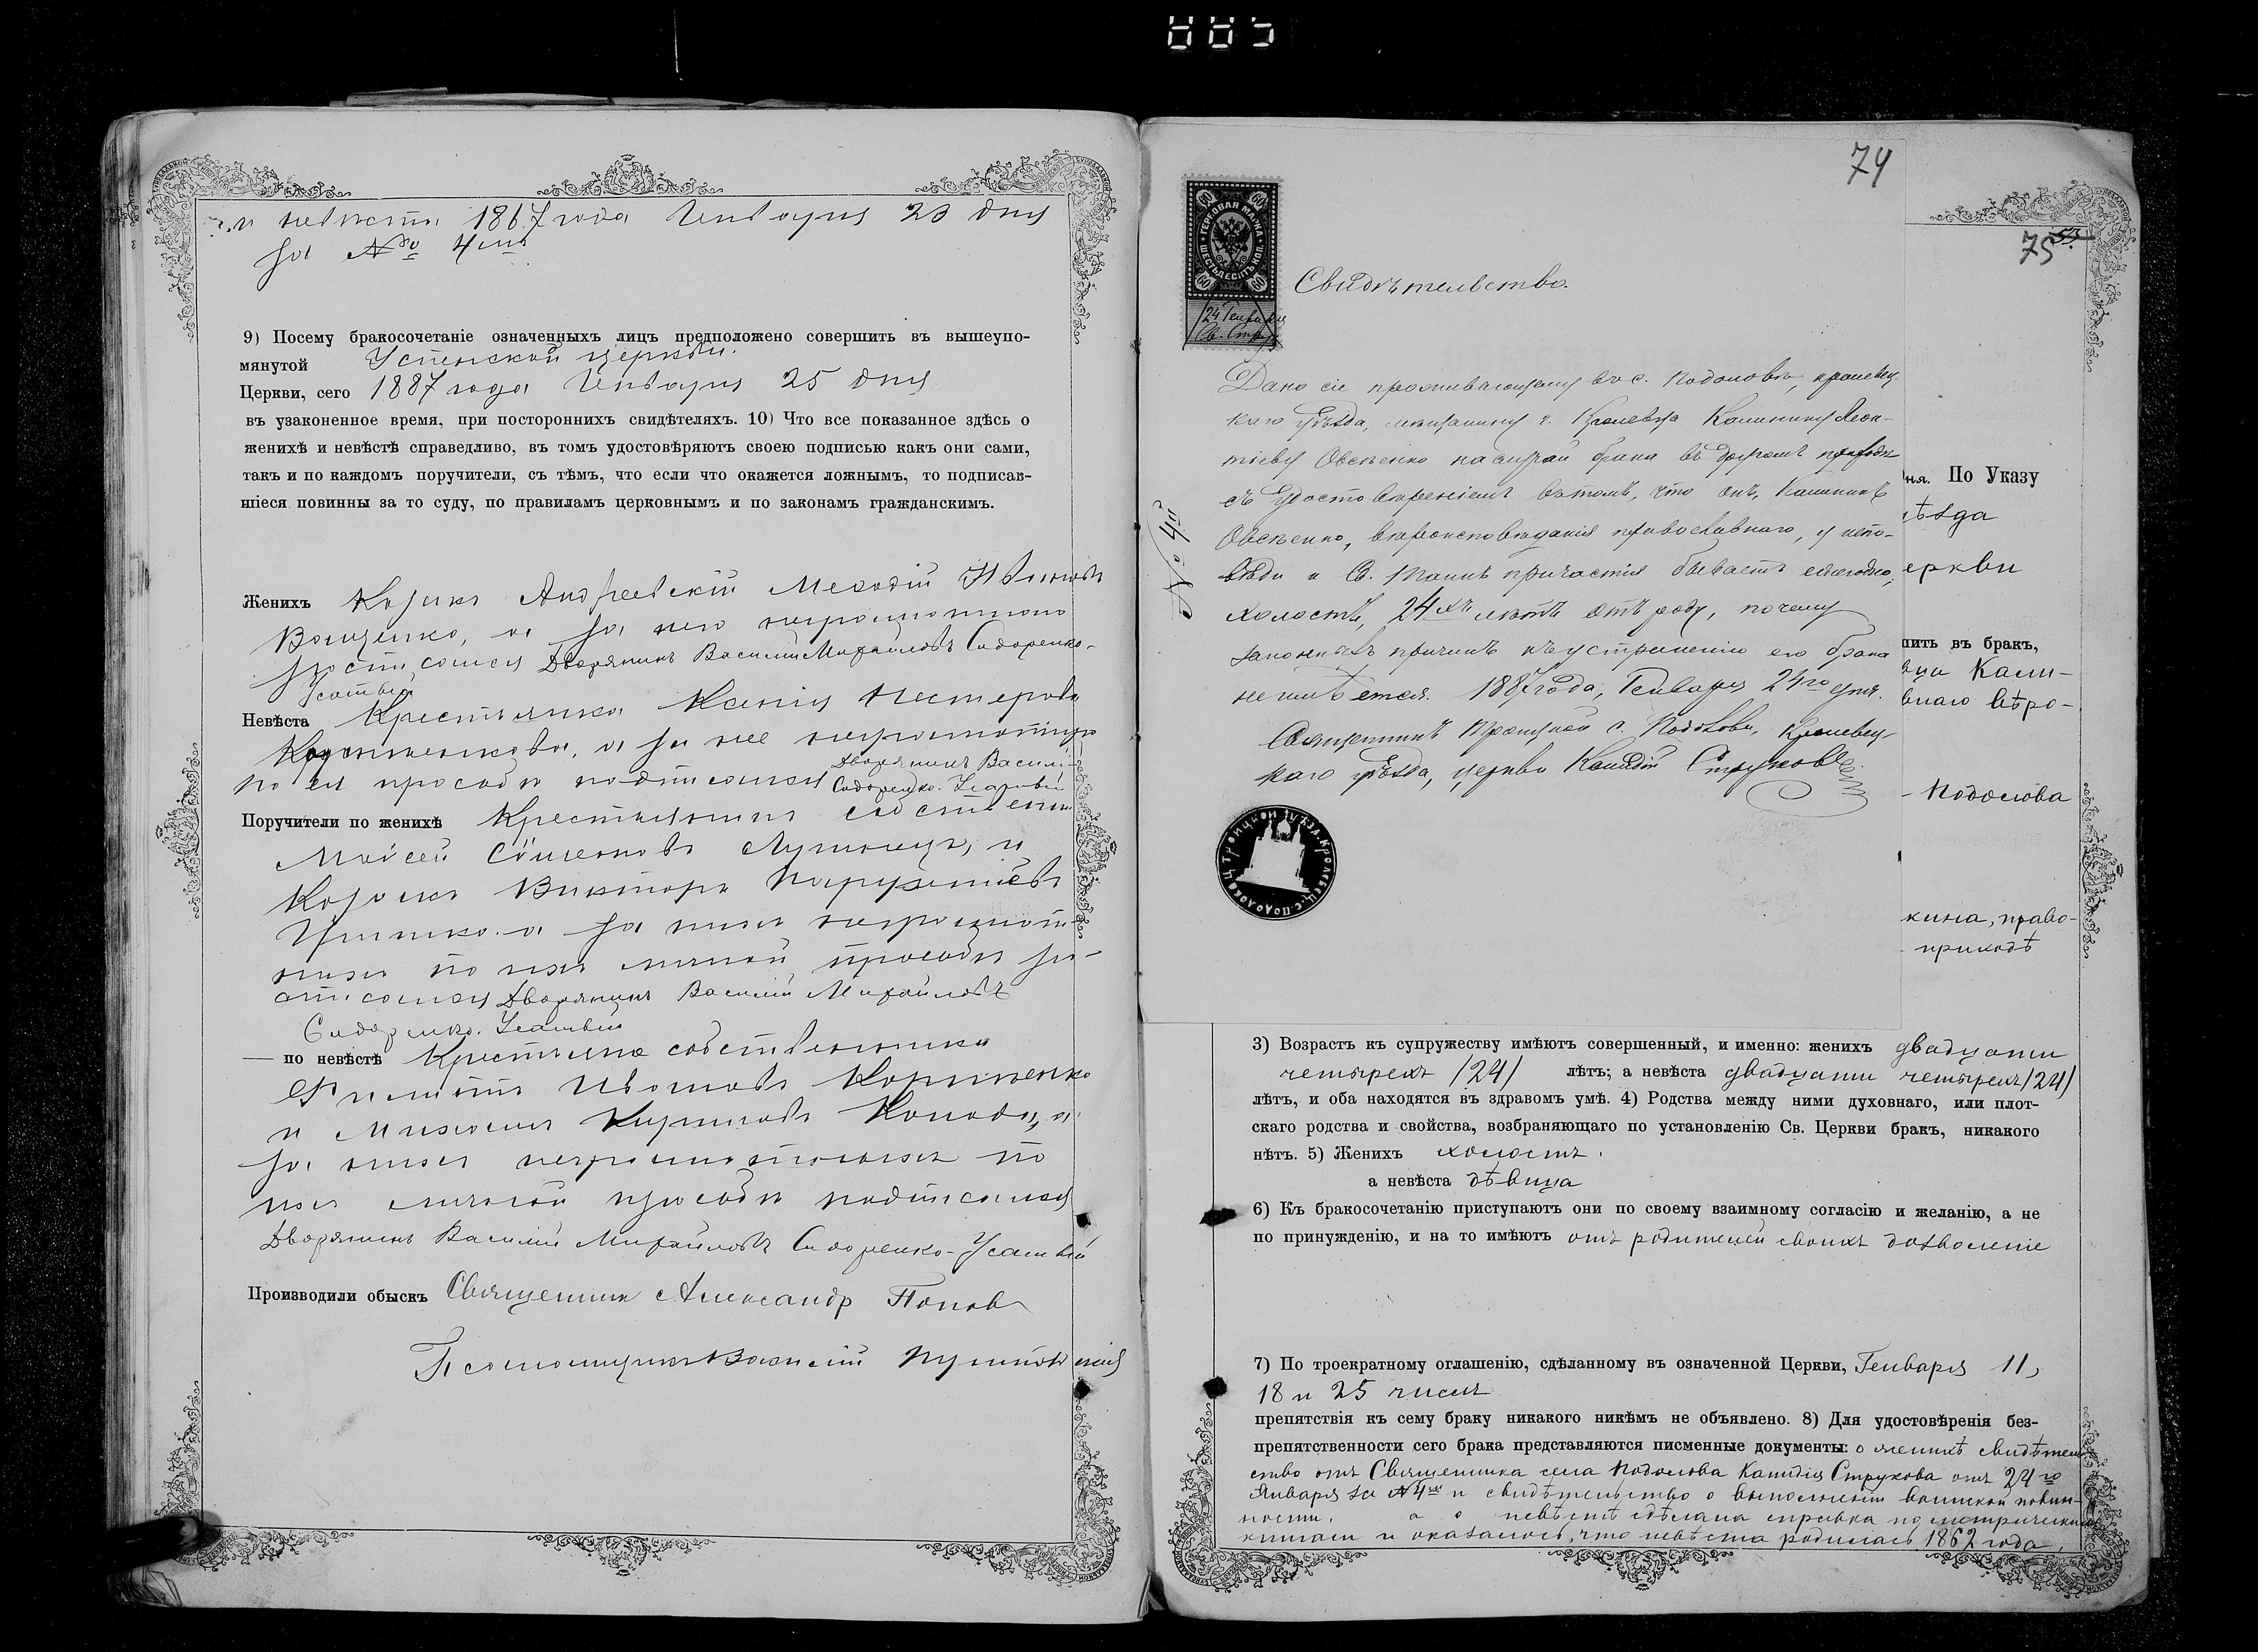 невѣста 1867 года Января 23 дня
за № 4мъ
9) Посему бракосочетаніе означенныхъ лицъ предположено совершить въ вышеупо-
мянутой Успенской церкви.
Церкви, сего 1887 года Января 25 дня
въ узаконенное время, при постороннихъ свидѣтеляхъ. 10) Что все показанное здѣсь о
женихѣ и невѣстѣ справедливо, въ томъ удостовѣряютъ своею подписью какъ они сами,
такъ и по каждомъ поручители, съ тѣмъ, что если что окажется ложнымъ, то подписав-
шіеся повинны за то суду, по правиламъ церковнымъ и по законамъ гражданскимъ.
Женихъ Козакъ Андреевскій Меѳодій
Ващенко, а за него неграмотнаго
росписался Дворянинъ Василій Михайловъ Сидоренко-
Усатый
Невѣста Крестьянка Ксенія Нестерова
а за нее неграмотную
по ея просьбѣ подписался Дворянинъ Василій
Сидоренко-Усатый
Поручители по женихѣ Крестьянинъ собственникъ
Моисей Симоновъ и
Козакъ Викторъ
а за нихъ неграмот-
ныхъ по ихъ личной просьбѣ ро-
списался Дворянинъ Василій Михайловъ
Сидоренко-Усатый
— по невѣстѣ Крестьяне собственники
Филиппъ Ивановъ
и Михаилъ Кириловъ а
за нихъ неграмотныхъ по
ихъ личной просьбѣ подписался
Дворянинъ Василій Михайловъ Сидоренко-Усатый
Производили обыскъ Священникъ Александр Попов
Псаломщикъ Василій
74
ГЕРБОВАЯ МАРКА
ШЕСТЬДЕСЯТЪ КОП.
60 60
60 60
24 Генваря
Св. Струк
Свидѣтельство.
№ 4й
Дано сіе проживающему въ с. Подоловѣ, кролевец-
каго уѣзда, мѣщанину г. Кролевца Калинику Леон-
тіеву Овсѣенко на случай брака въ другомъ приходѣ
съ удостовѣреніемъ въ томъ, что онъ, Калиникъ
Овсѣенко, вѣроисповѣданія православнаго, у испо-
вѣди и Св. Таинъ причастія бываетъ ежегодно,
холостъ, 24хъ лѣтъ отъ роду, почему
законныхъ причинъ къ устраненію его брака
не имѣется. 1887 года, Генваря 24го дня.
Священникъ Троицкой с. Подолова, Кролевец-
каго уѣзда, церкви Струковъ
75
53.
ня. По Указу
ѣзда
еркви
пить въ брак,
Кали-
внаго вѣро-
- Подолова
кина, право-
- приходѣ
3) Возрастъ къ супружеству имѣютъ совершенный, и именно: женихъ двадцати
четырехъ /24/ лѣтъ; а невѣста двадцати четырехъ /24/
лѣтъ, и оба находятся въ здравомъ умѣ. 4) Родства между ними духовнаго, или плот-
скаго родства и свойства, возбраняющаго по установленію Св. Церкви бракъ, никакого
нѣтъ. 5) Женихъ холостъ.
а невѣста дѣвица
6) Къ бракосочетанію приступаютъ они по своему взаимному согласію и желанію, а не
по принужденію, и на то имѣютъ отъ родителей своихъ дозволеніе
7) По троекратному оглашенію, сдѣланному въ означенной Церкви, Генваря 11,
18 и 25 чиселъ
препятствія къ сему браку никакого никѣмъ не объявлено. 8) Для удостовѣренія без-
препятственности сего брака представляются писменные документы: о женихѣ свидѣтель
ство отъ Священника села Подолова Струкова отъ 24го
Января за № 4мъ и свидѣтельство о выполненіи воинской повин-
ности, а о невѣстѣ сдѣлана справка по метрическимъ
книгам и оказалось, что невѣста родилась 1862 года,